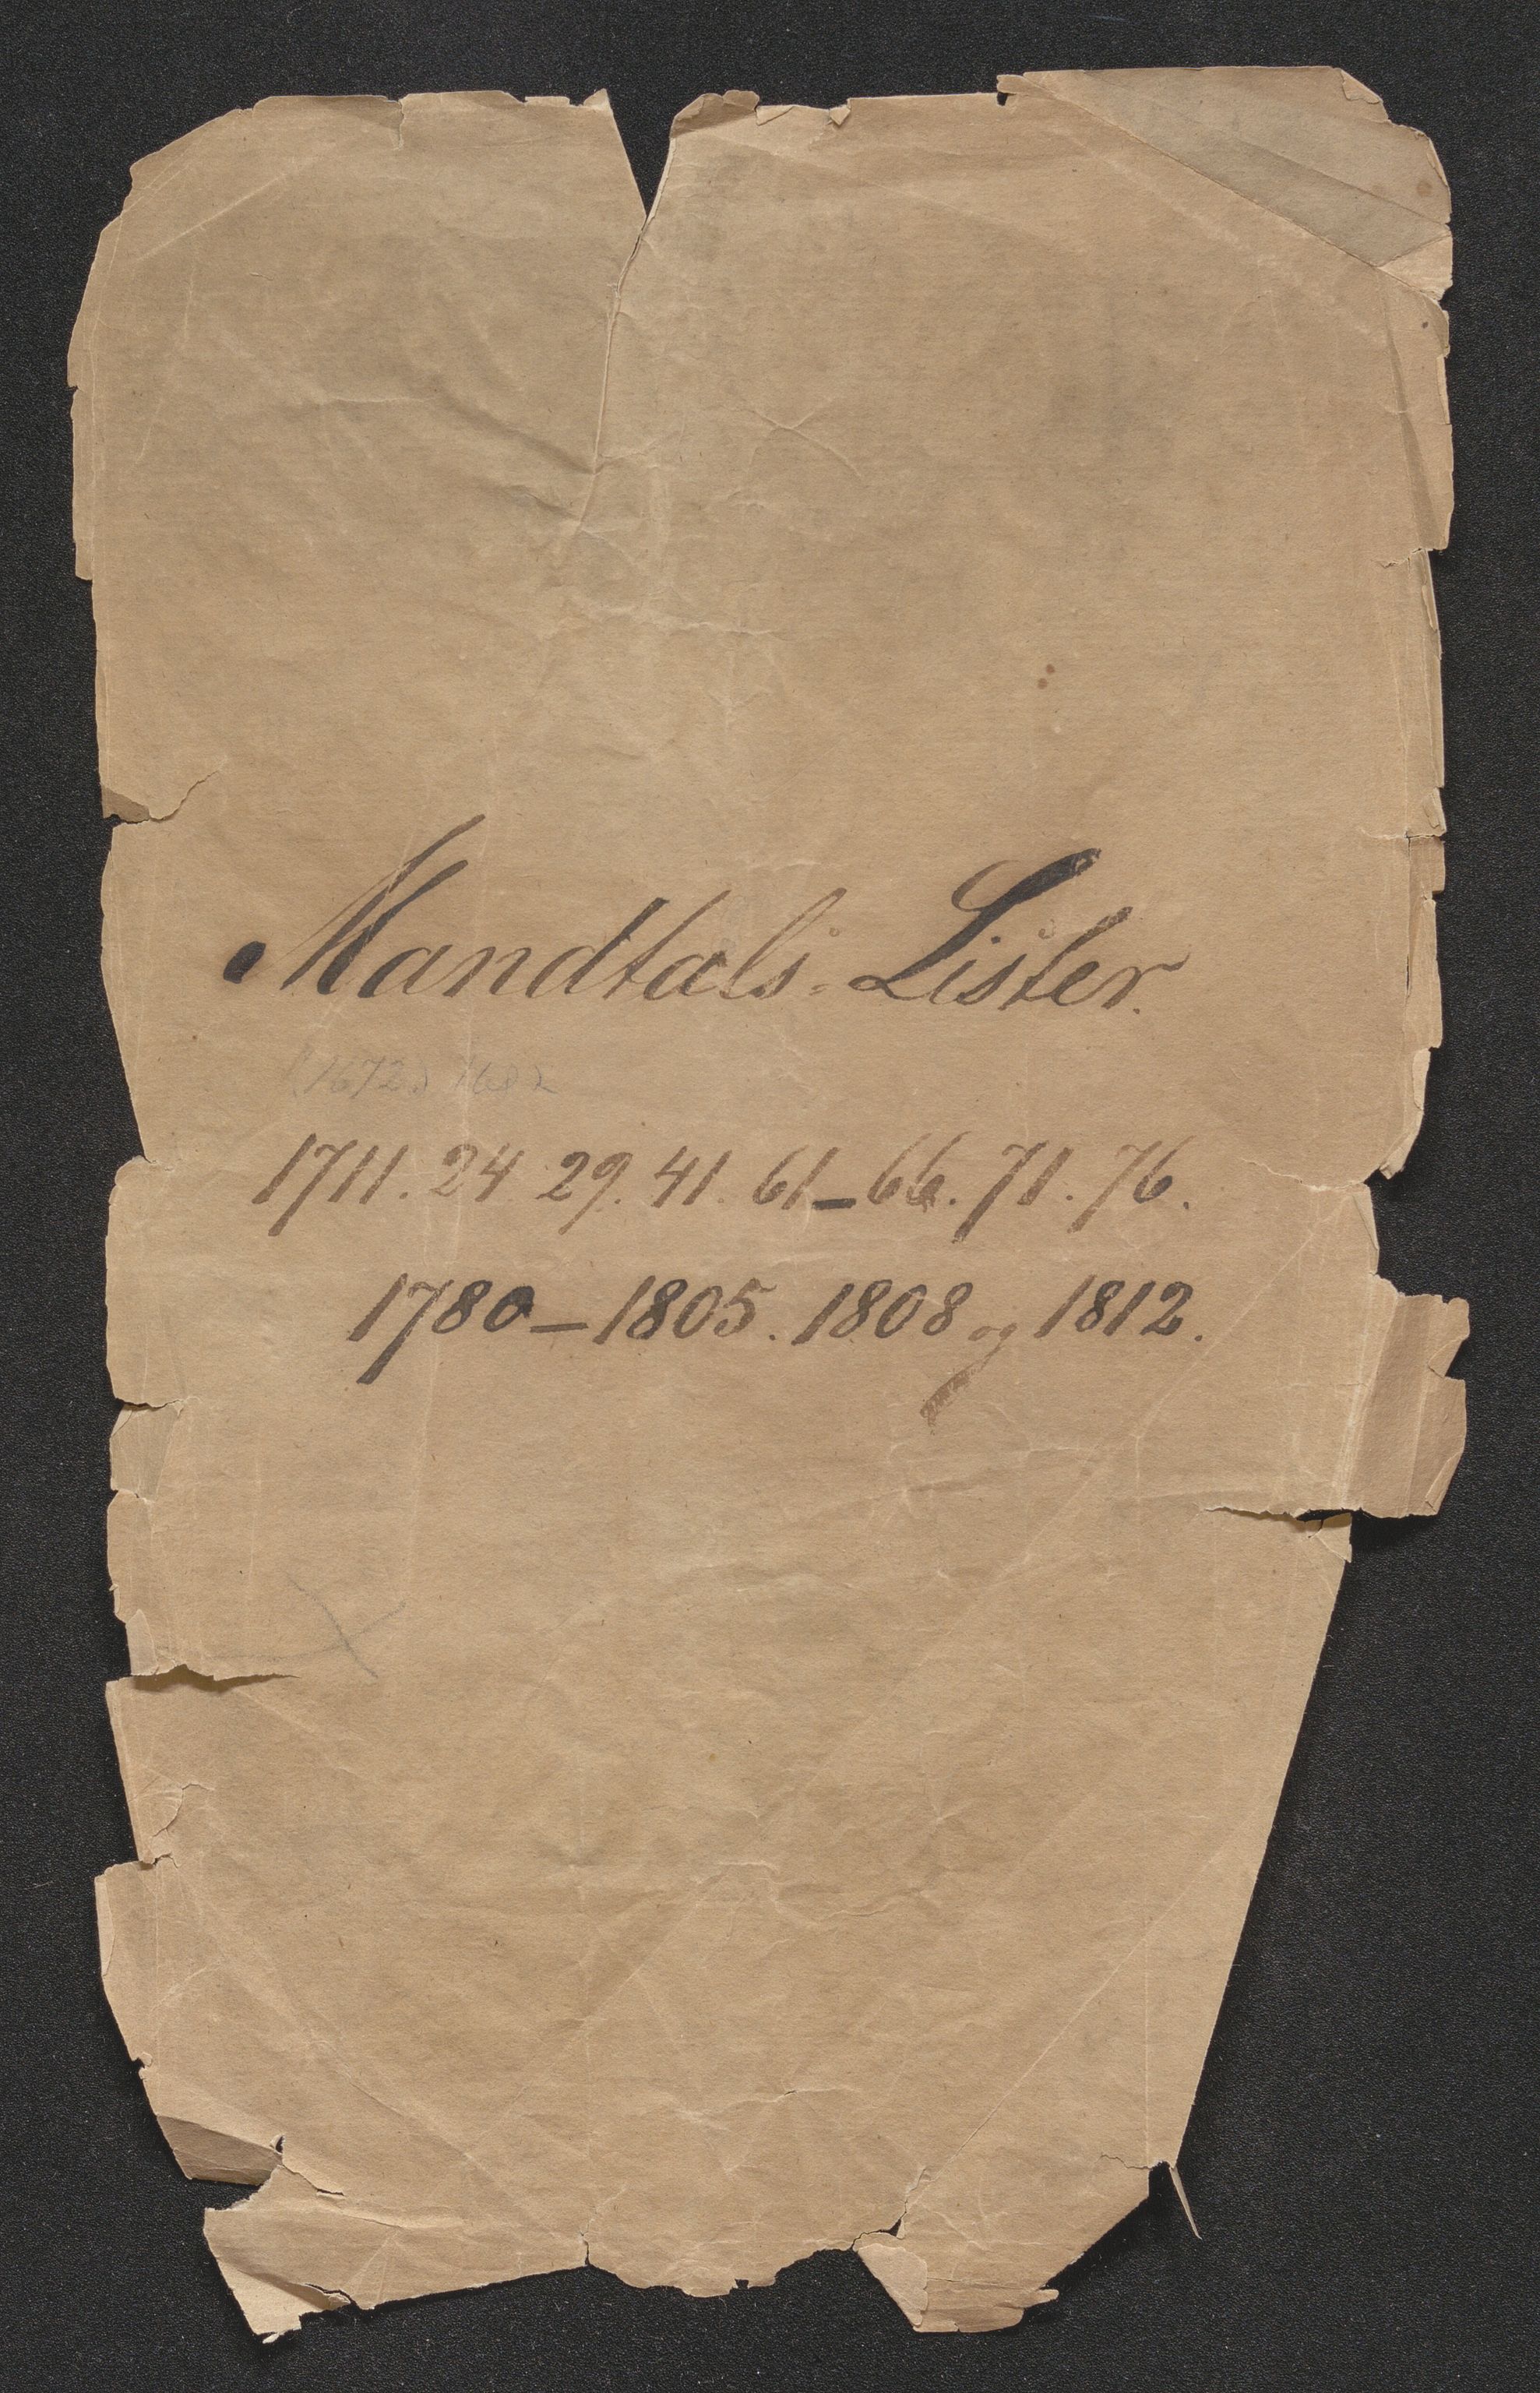 Mandtals-Lister.
(1672)
1711. 24 29. 41. 61_66. 71. 76.
1780_1805. 1808 og 1812.